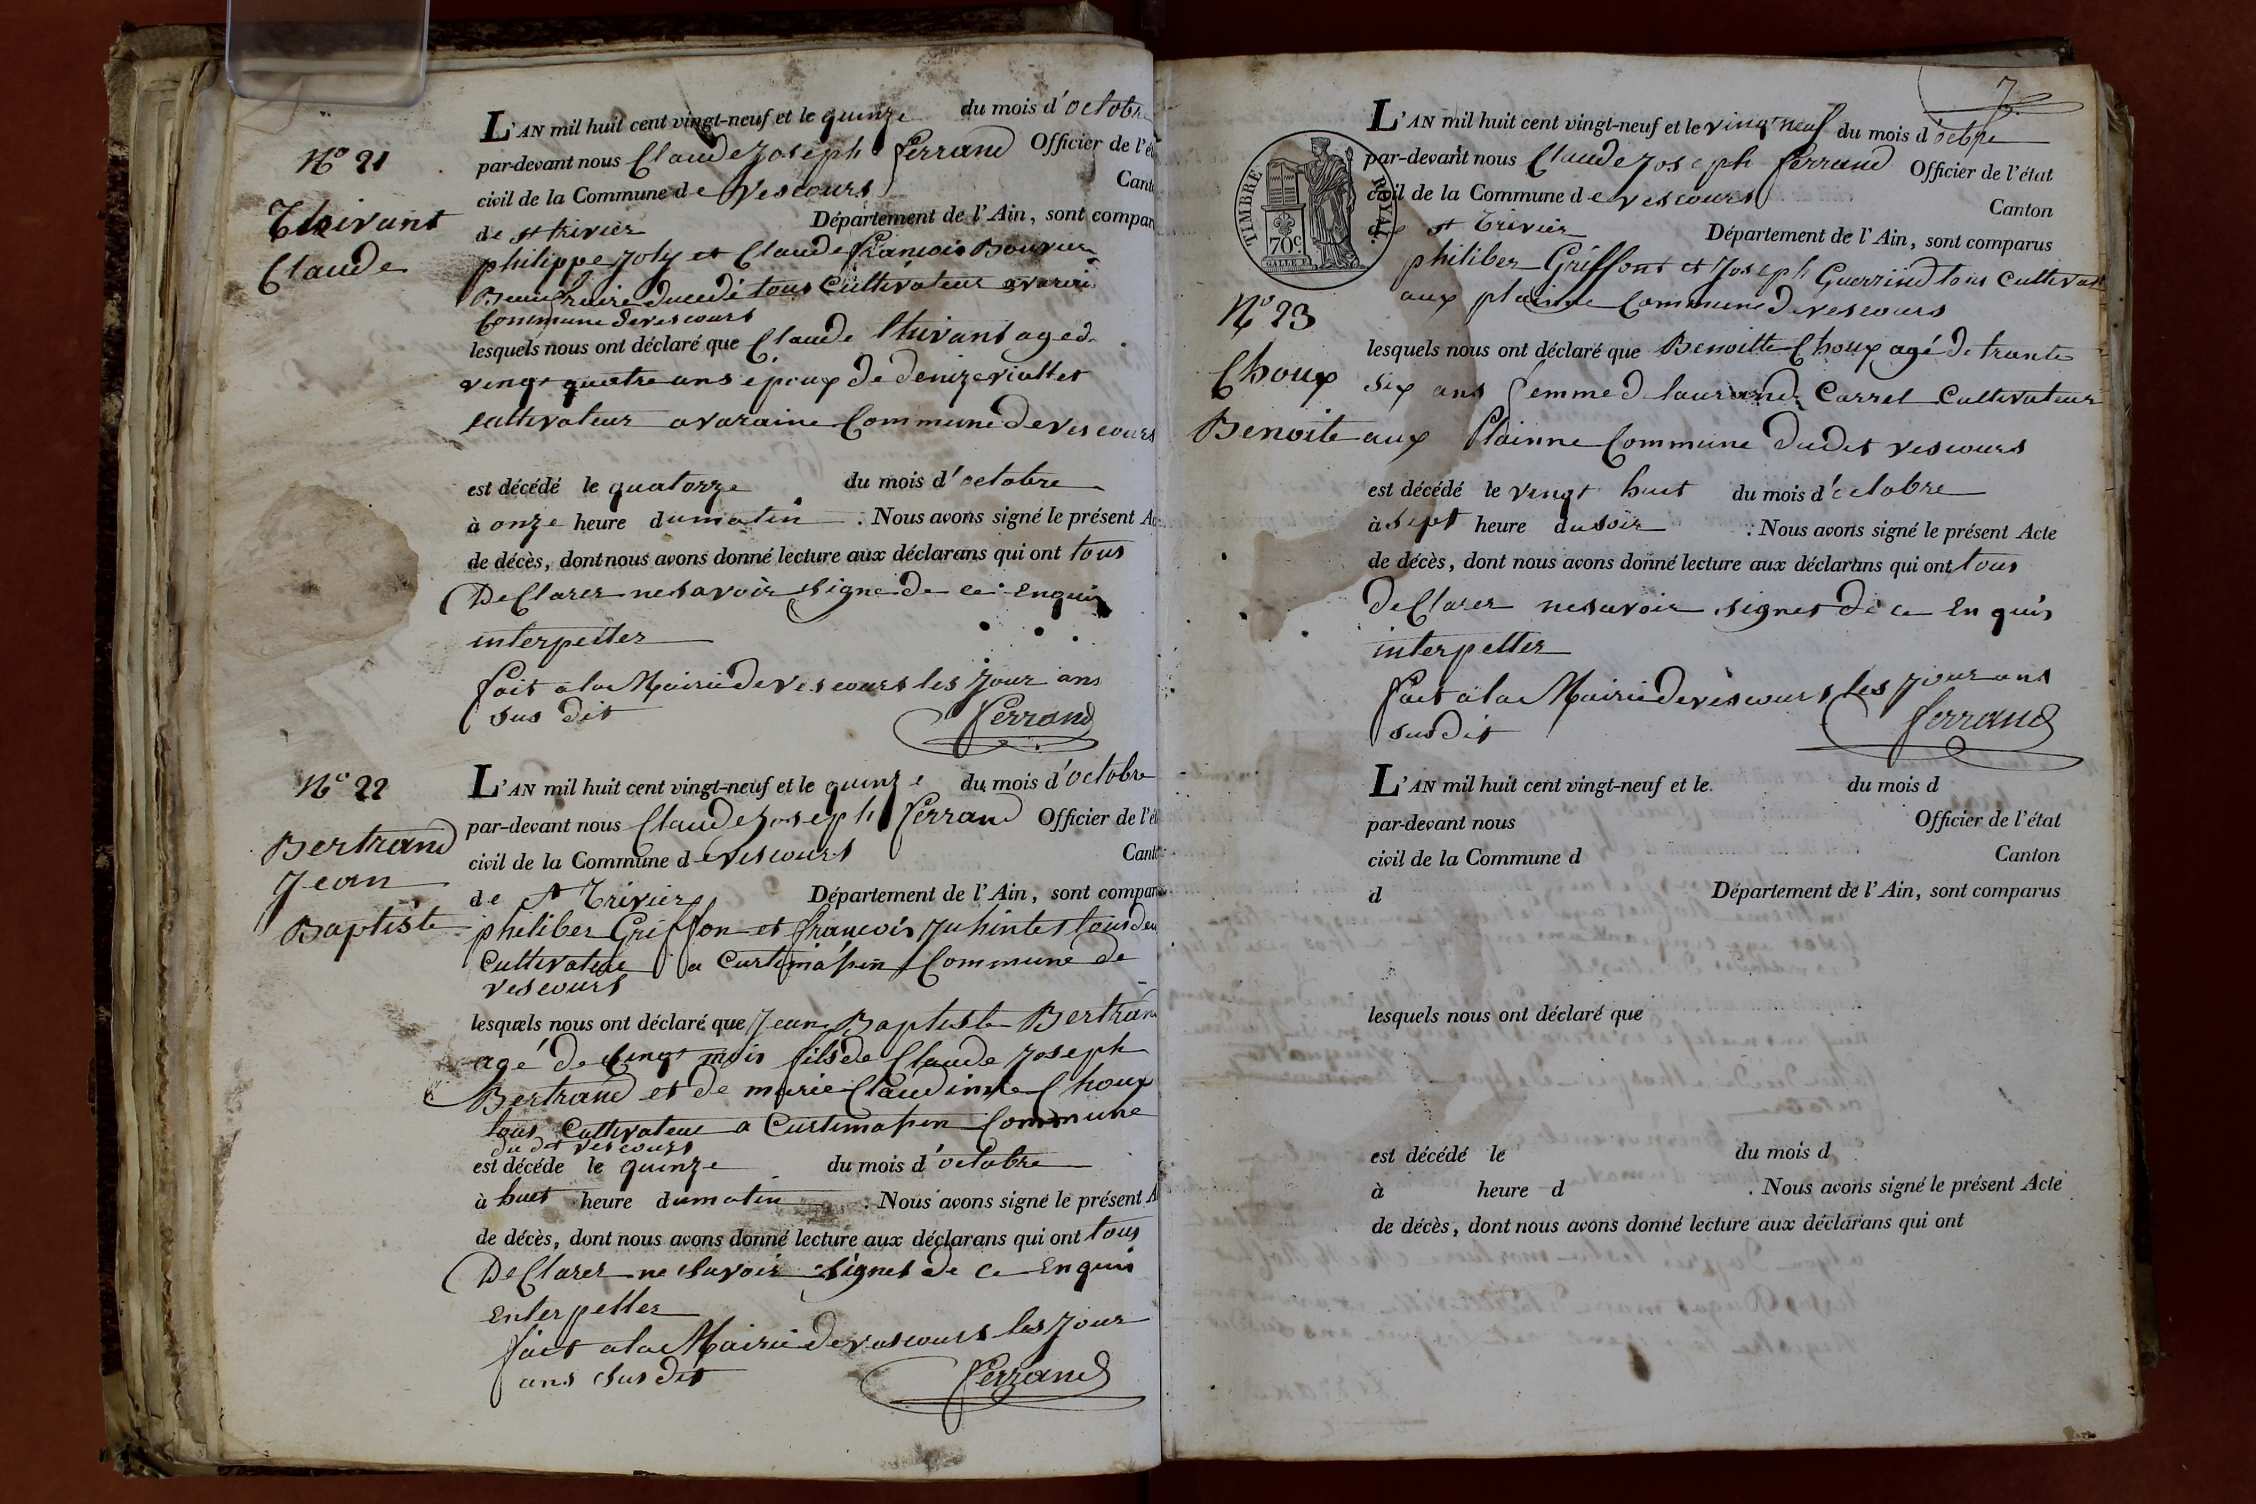 N° 21
Thivant
Claude
L'AN mil huit cent vingt-neuf et le quinze du mois d'octobre
par-devant nous Claude Joseph ferrand Officier de l'ét
civil de la Commune de Vescours Cant
de st trivier Département de l'Ain, sont compar
philippe Joly et Claude françois Bouvier
Beaufraire ducedé tous Cultivateur a varein
Commune de vescours
lesquels nous ont déclaré que Claude thivant aged
vingt quatre ans epoux de denize viallet
cultivateur a varaine Commune de vescours
est décédé le quatorze du mois d'octobre
à onze heure dumatin : Nous avons signé le présent A
de décès, dont nous avons donné lecture aux déclarans qui ont tous
DeClarer nesavoir signe de ce Enquis
interpeller
fait a la Mairie de vescours les Jour ans
sus dit
ferrand
N° 22
Bertrand
Jean
Baptiste
L'AN mil huit cent vingt-neuf et le quinze du mois d'octobre
par-devant nous Claude Joseph ferrand Officier de l'ét
civil de la Commune de vescours Cant
de st Trivier Département de l'Ain, sont compar
philiber Griffon et françois Juhintet tous deu
Cultivateur a Curtimassin Commune de
vescours
lesquels nous ont déclaré que Jean Baptiste Bertran
agé de vingt mois fils de Claude Joseph
Bertrand et de marie Claudinne Choux
tous Cultivateur a Curtimassin Commune
du dit vescours
est décéde le quinze du mois d'octobre
à huit heure dumatin : Nous avons signé le présent A
de décès, dont nous avons donné lecture aux déclarans qui ont tous
DeClarer ne savoir signer de ce Enquis
Enterpeller
fait a la Mairie de vescours les Jour
ans sus dit
ferrand
7.
TIMBRE ROYAL.
70c
N° 23
Choux
Benoite
L'AN mil huit cent vingt-neuf et le vingt neuf du mois d'octbre
par-devant nous Claude Joseph ferrand Officier de l'état
civil de la Commune de vescours Canton
de st Trivier Département de l'Ain, sont comparus
philiber Griffont et Joseph Guerrind tous cultivat
aux plainne Commune de vescours
lesquels nous ont déclaré que Benoitte Choux agé de trante
six ans femme d laurand Carrel Cultivateur
aux Plainne Commune dudit vescours
est décédé le vingt huit du mois d'octobre
à sept heure du soir : Nous avons signé le présent Acte
de décès, dont nous avons donné lecture aux déclarans qui ont tous
deClarer nesavoir signer de ce En quis
interpeller
fait a la Mairie de vescours les Jour ans
susdit
ferrand
L'AN mil huit cent vingt-neuf et le du mois d
par-devant nous Officier de l'état
civil de la Commune d Canton
d Département de l'Ain, sont comparus
lesquels nous ont déclaré que
est décédé le du mois d
à heure d . Nous avons signé le présent Acte
de décès, dont nous avons donné lecture aux déclarans qui ont